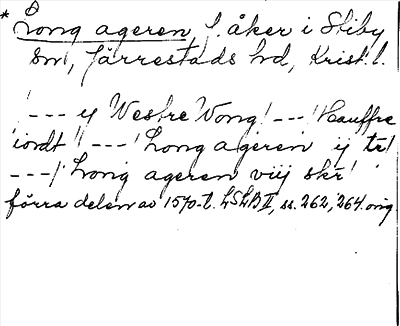 * Long ageren, f. åker i Stiby
sn, Järrestads hd, Krist. l.
'--- y Westre Wong' ---' Hauffre
iordt' ---' Long ageren ij tr'
---' Long ageren viij skr'
förra delen av 1570-t. LSLB II, ss. 262, 264. orig.